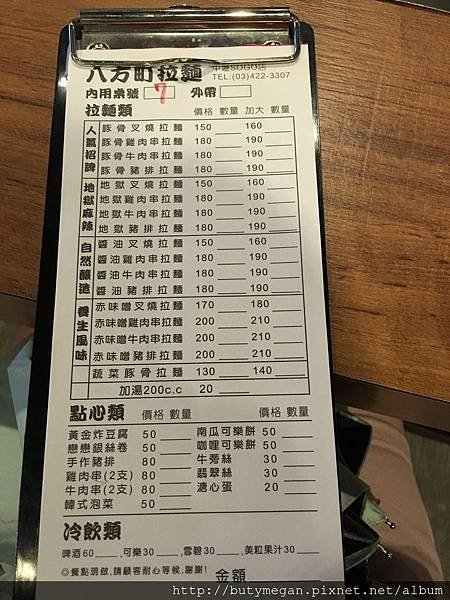 八方町拉麵 中壢SOGO店
TEL:(03)422-3307
內用桌號 7 外帶
拉麵類 價格 數量 加大 數量
人氣招牌
豚骨叉燒拉麵 150 160
豚骨雞肉串拉麵 180 190
豚骨牛肉串拉麵 180 190
豚骨豬排拉麵 180 190
地獄麻辣
地獄叉燒拉麵 150 160
地獄雞肉串拉麵 180 190
地獄牛肉串拉麵 180 190
地獄豬排拉麵 180 190
自然釀造
醬油叉燒拉麵 150 160
醬油雞肉串拉麵 180 190
醬油牛肉串拉麵 180 190
醬油豬排拉麵 180 190
養生風味
赤味噌叉燒拉麵 170 180
赤味噌雞肉串拉麵 200 210
赤味噌牛肉串拉麵 200 210
赤味噌豬排拉麵 200 210
蔬菜豚骨拉麵 130 140
加湯200c.c 20
點心類 價格 數量 價格 數量
黃金炸豆腐 50 南瓜可樂餅 50
戀戀銀絲卷 50 咖哩可樂餅 50
手作豬排 80 牛蒡絲 30
雞肉串(2支) 80 翡翠絲 30
牛肉串(2支) 80 溏心蛋 20
韓式泡菜 50
冷飲類
啤酒60 ,可樂30 ,雪碧30 ,美粒果汁30
◎餐點現做,請顧客耐心等候,謝謝! 金額
http://butymegan.pixnet.net/album